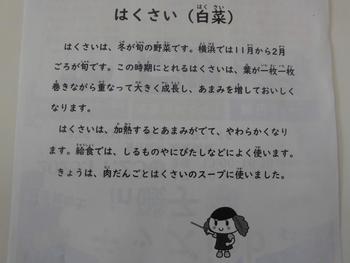 はくさい（白菜）
はくさいは、冬が旬の野菜です。横浜では11月から2月
ごろが旬です。この時期にとれるはくさいは、葉が一枚一枚
巻きながら重なって大きく成長し、あまみを増しておいしく
なります。
はくさいは、加熱するとあまみがでて、やわらかくなり
ます。給食では、しるものやにびたしなどによく使います。
きょうは、肉だんごとはくさいのスープに使いました。